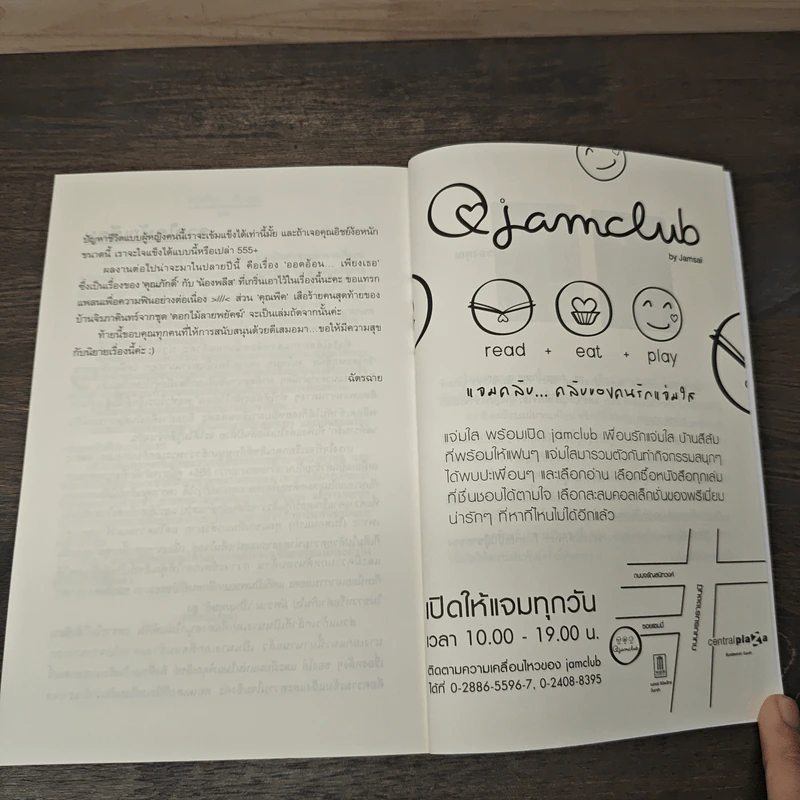 ปัญหาชีวิตแบบผู้หญิงคนนี้เราจะเข้มแข็งได้เท่านี้มั้ย และถ้าเจอคุณอิชย์ง้อหนัก
ขนาดนี้ เราจะใจแข็งได้แบบนี้หรือเปล่า 555+
ผลงานต่อไปน่าจะมาในปลายปีนี้ คือเรื่อง 'ออดอ้อน... เพียงเธอ'
ซึ่งเป็นเรื่องของ 'คุณภักดิ์' กับ 'น้องพลีส' ที่เกริ่นเอาไว้ในเรื่องนี้นะคะ ขอแทรก
แพลนเพื่อความฟินอย่างต่อเนื่อง >///< ส่วน 'คุณพีค' เสือร้ายคนสุดท้ายของ
บ้านจิรภาคินทร์จากชุด 'ดอกไม้ลายพยัคฆ์' จะเป็นเล่มถัดจากนั้นค่ะ
ท้ายนี้ขอบคุณทุกคนที่ให้การสนับสนุนด้วยดีเสมอมา...ขอให้มีความสุข
กับนิยายเรื่องนี้ค่ะ :)
ฉัตรฉาย
jamclub
by Jamsai
read + eat + play
แจมคลับ... คลับของคนรักแจ่มใส
แจ่มใส พร้อมเปิด jamclub เพื่อนรักแจ่มใส บ้านสีส้ม
ที่พร้อมให้แฟนๆ แจ่มใสมารวมตัวกันทำกิจกรรมสนุกๆ
ได้พบปะเพื่อนๆ และเลือกอ่าน เลือกซื้อหนังสือทุกเล่ม
ที่ชื่นชอบได้ตามใจ เลือกสะสมคอลเล็กชั่นของพรีเมียม
น่ารักๆ ที่หาที่ไหนไม่ได้อีกแล้ว
เปิดให้แจมทุกวัน
เวลา 10.00 - 19.00 น.
ติดตามความเคลื่อนไหวของ jamclub
ได้ที่ 0-2886-5596-7, 0-2408-8395
ถนนจรัญสนิทวงศ์
jamclub
centralplaza